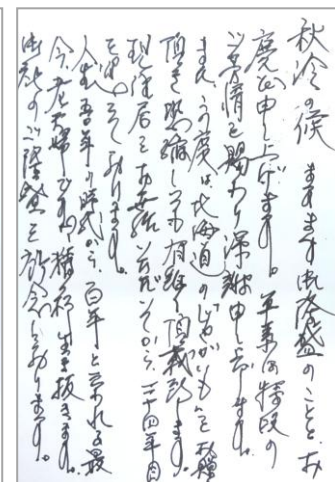 秋冷の候 ますます御隆盛のことと、お
慶び申し上げます。平素は格段の
ご芳情を賜わり深謝申し上げます。
また、この度は、北海道の「じゃがいも」をお贈
頂き恐縮しつつも有難く頂戴致します。
現住居をお世話いただいてから、二十四年目
を迎えております。
人生百年の時代から、百年と言われる最
今、老夫婦で 精一杯生き抜きます。
御社のご隆盛を祈念しております。